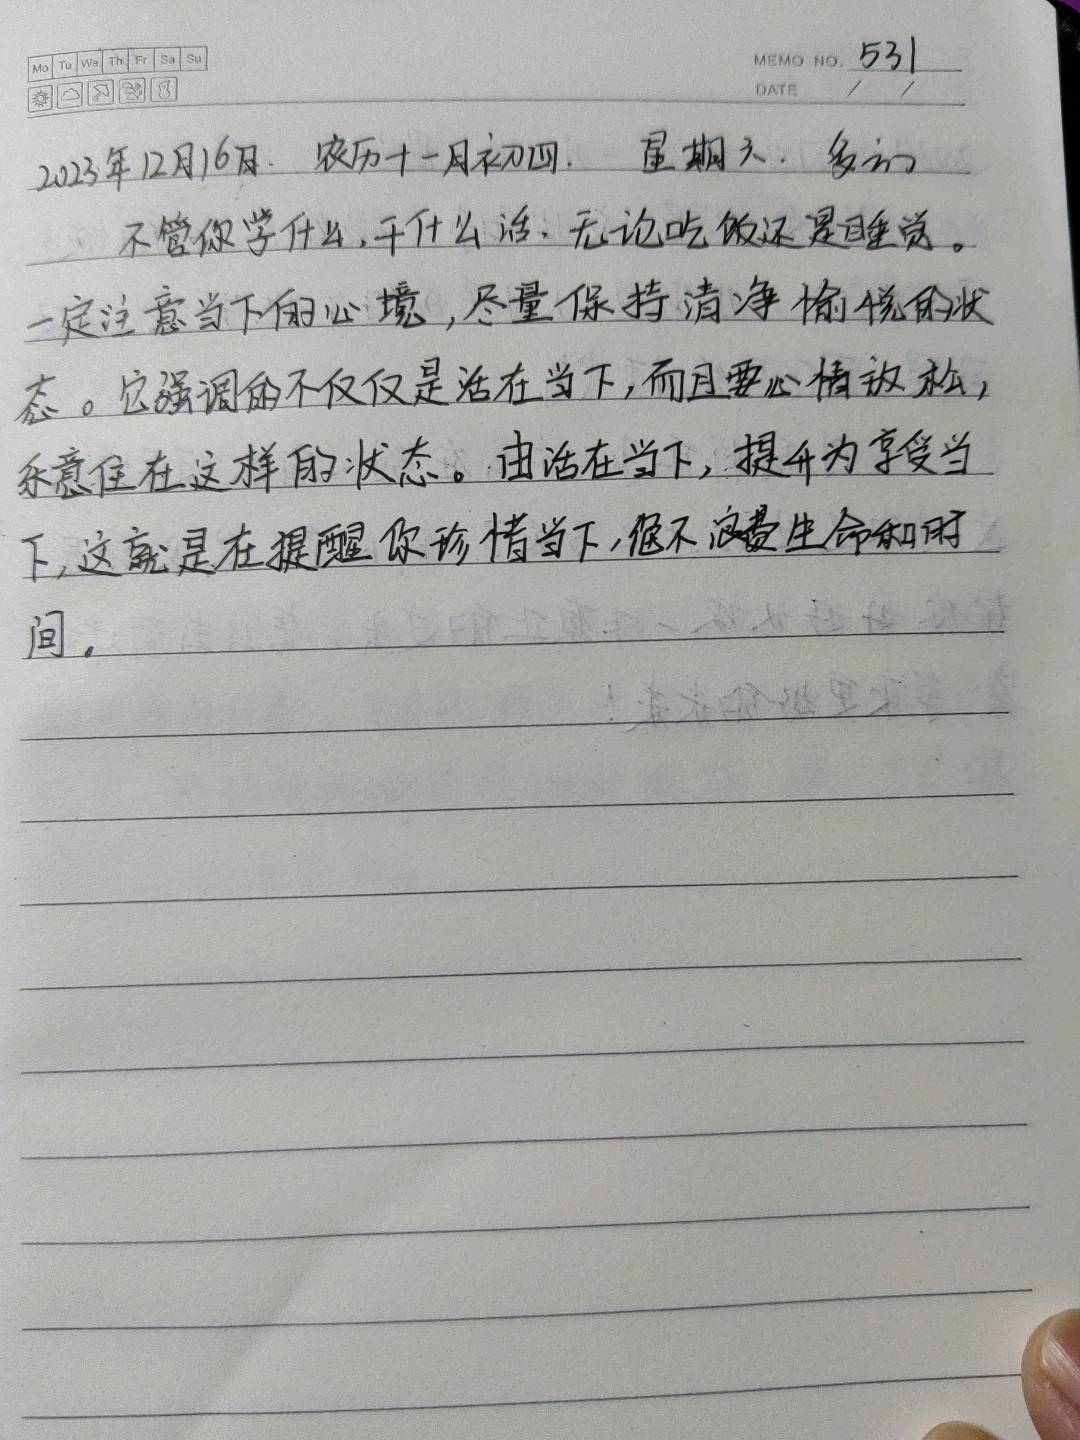 Mo Tu We Th Fr Sa Su
MEMO NO. 531
DATE / /
2023年12月16日. 农历十一月初四. 星期天. 多云
不管你学什么,干什么活、无论吃饭还是睡觉。
一定注意当下的心境,尽量保持清净愉悦的状
态。它强调的不仅仅是活在当下,而且要心情放松,
乐意住在这样的状态。由活在当下,提升为享受当
下,这就是在提醒你珍惜当下,绝不浪费生命和时
间。